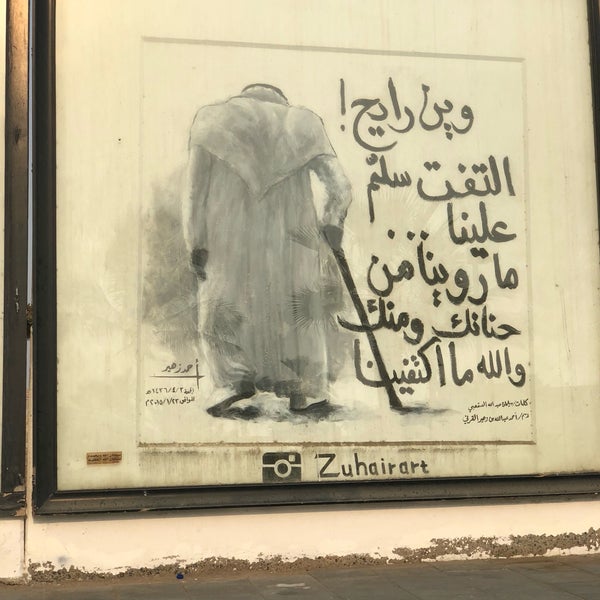 وين رايح!
التفت سلّم
علينا...
ما روينا من
حنانك ومنك
والله ما اكتفينا
أحمد زهير
الموافق ٢٠١٥/١/٢٣م
Zuhairart